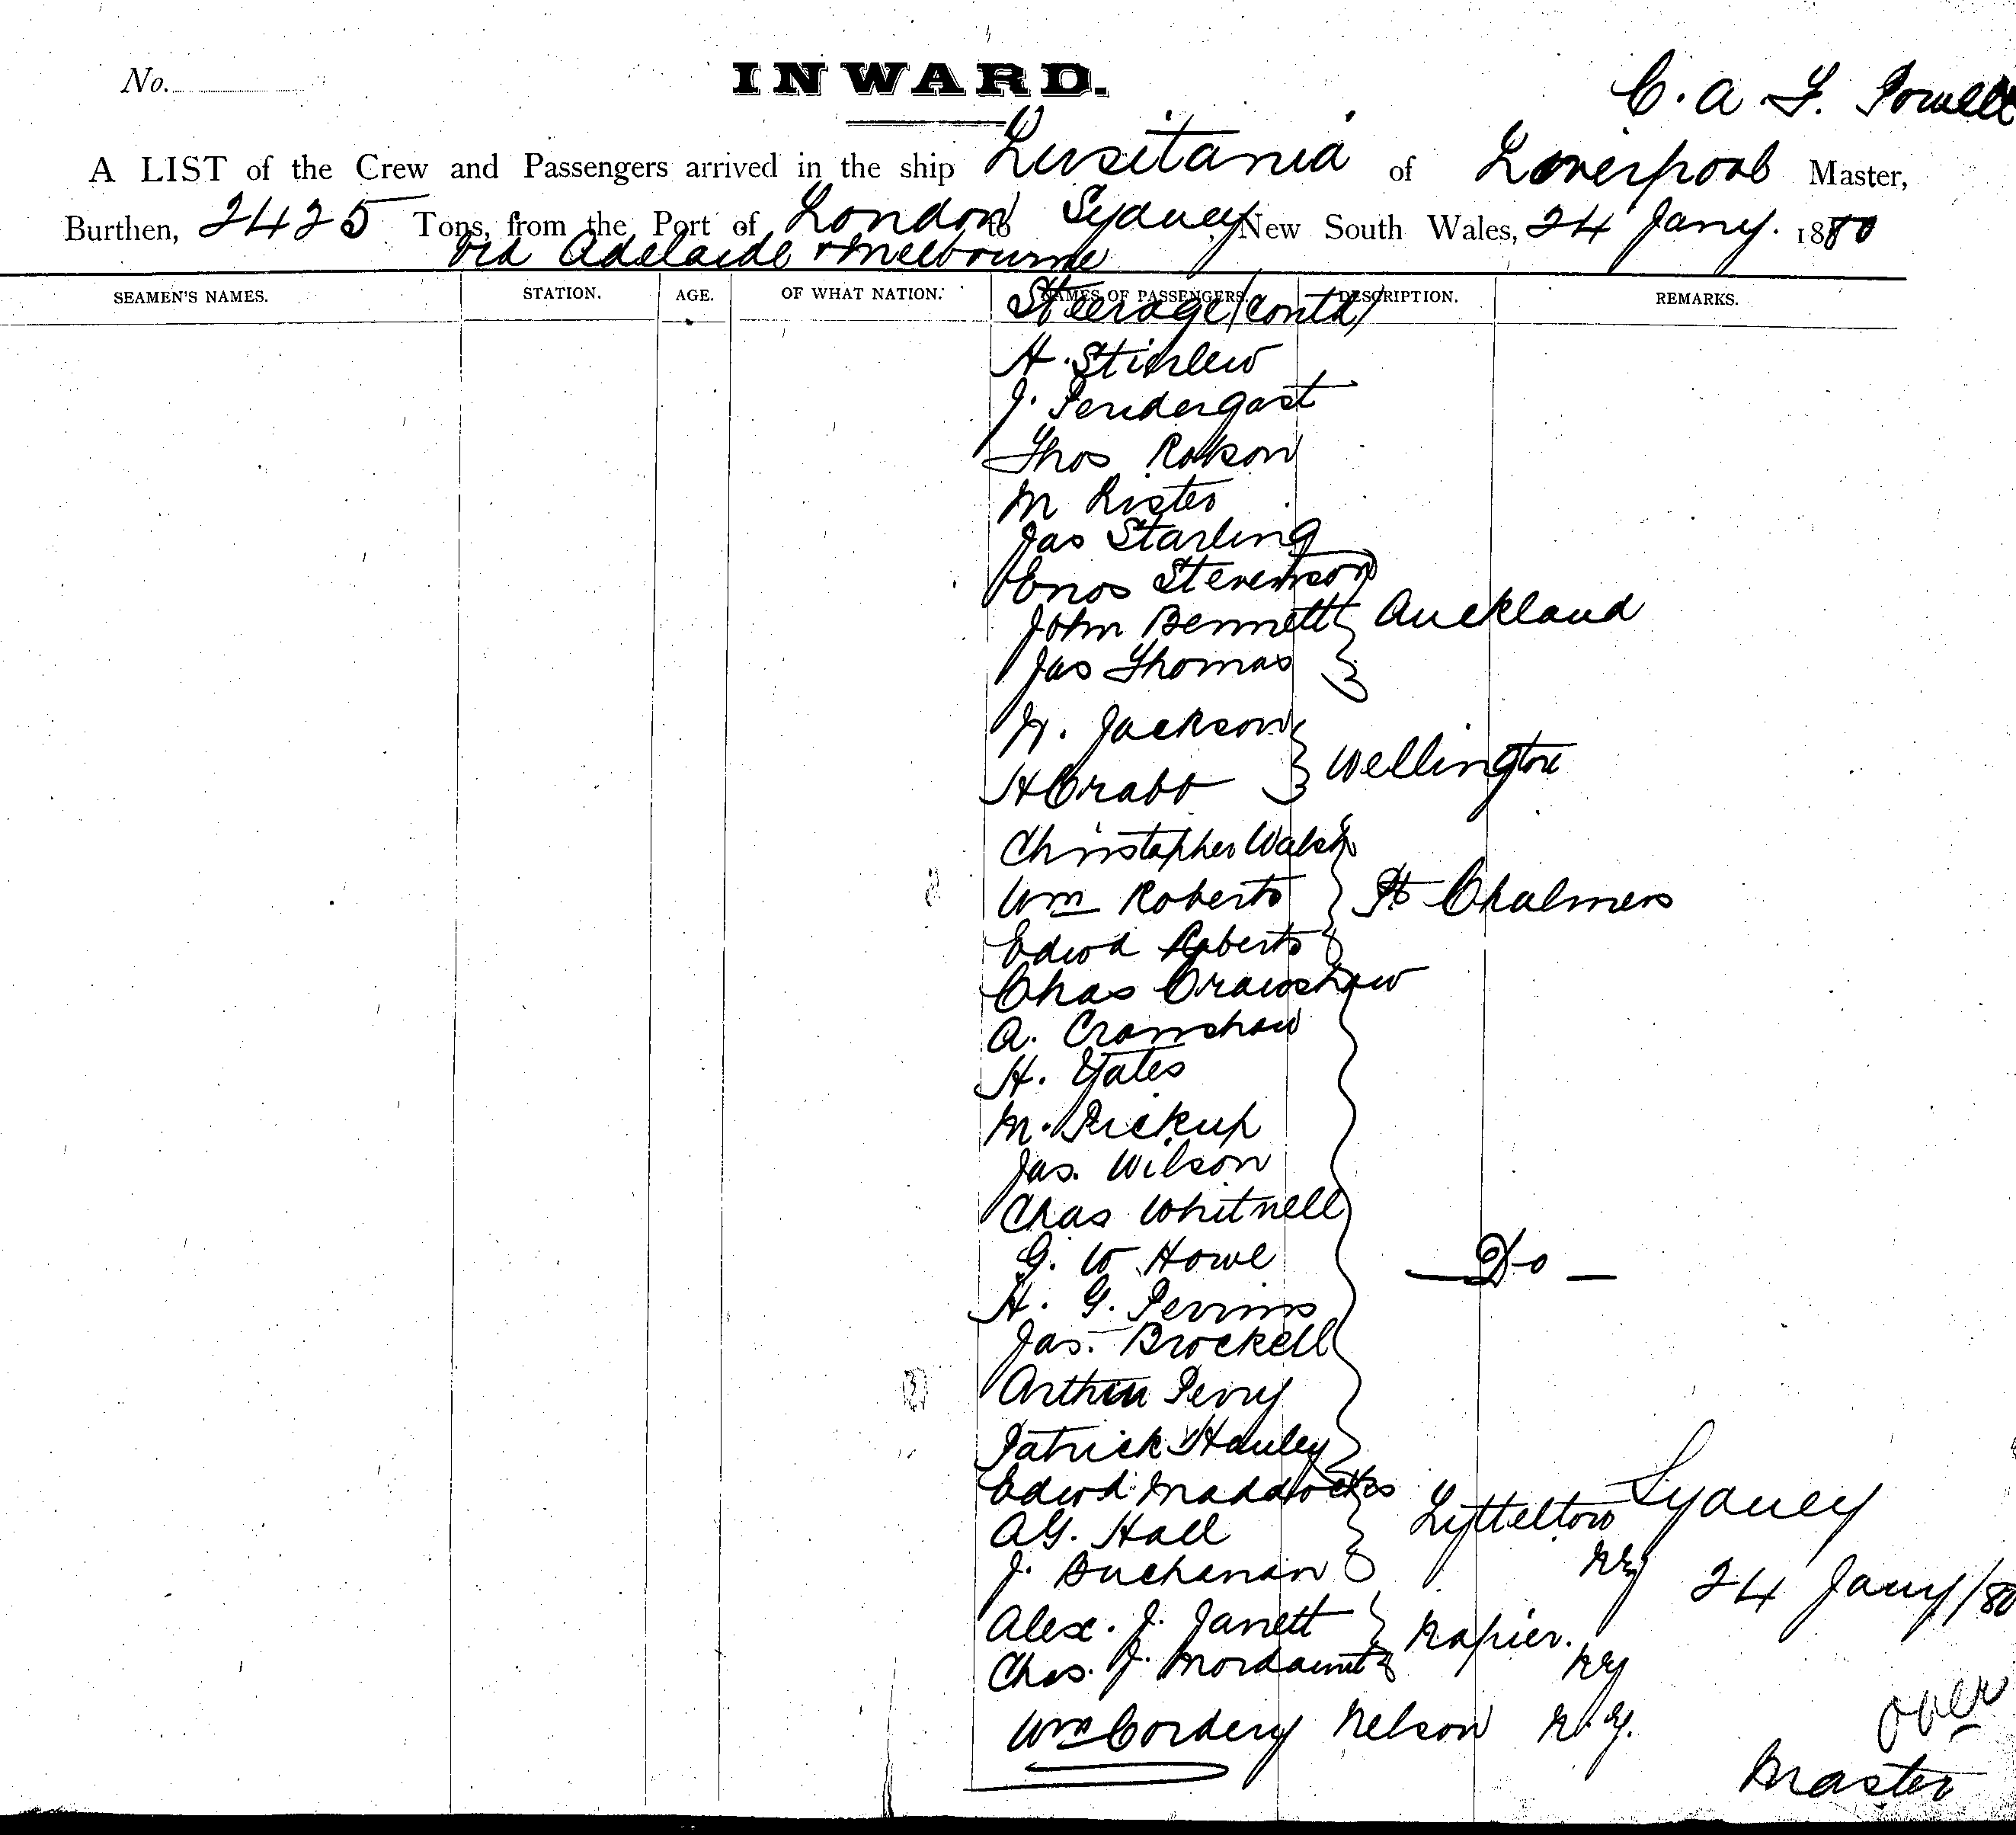 No.
INWARD.
C. A. F. Powell
A LIST of the Crew and Passengers arrived in the ship Lusitania of Liverpool Master,
Burthen, 2425 Tons, from the Port of London to Sydney, New South Wales, 24 Jany. 1880
via Adelaide & Melbourne
SEAMEN'S NAMES. STATION. AGE. OF WHAT NATION. NAMES OF PASSENGERS. DESCRIPTION. REMARKS.
Steerage (contd)
H.
J. Pendergast
Thos Robson
M
Jas Starling
Enos Stevenson
John Bennett Auckland
Jas Thomas
W. Jackson
H Crabb Wellington
Christopher Walsh
Wm Roberts Pt Chalmers
Edwd Roberts
Chas Crawshaw
A. Crawshaw
H. Yates
M. Pickup
Jas. Wilson
Chas Whitnell
G. W Howe Do
H. G. Perrins
Jas. Brockell
Arthur Perry
Patrick Hanley
Edwd Maddocks
A G. Hall Lyttelton Sydney
J. Buchanan NZ 24 Jany/80
Alex. J. Jarrett Napier.
Chas. J. Mordaunt NZ
Wm Cordery Nelson N.Z.
over
Master